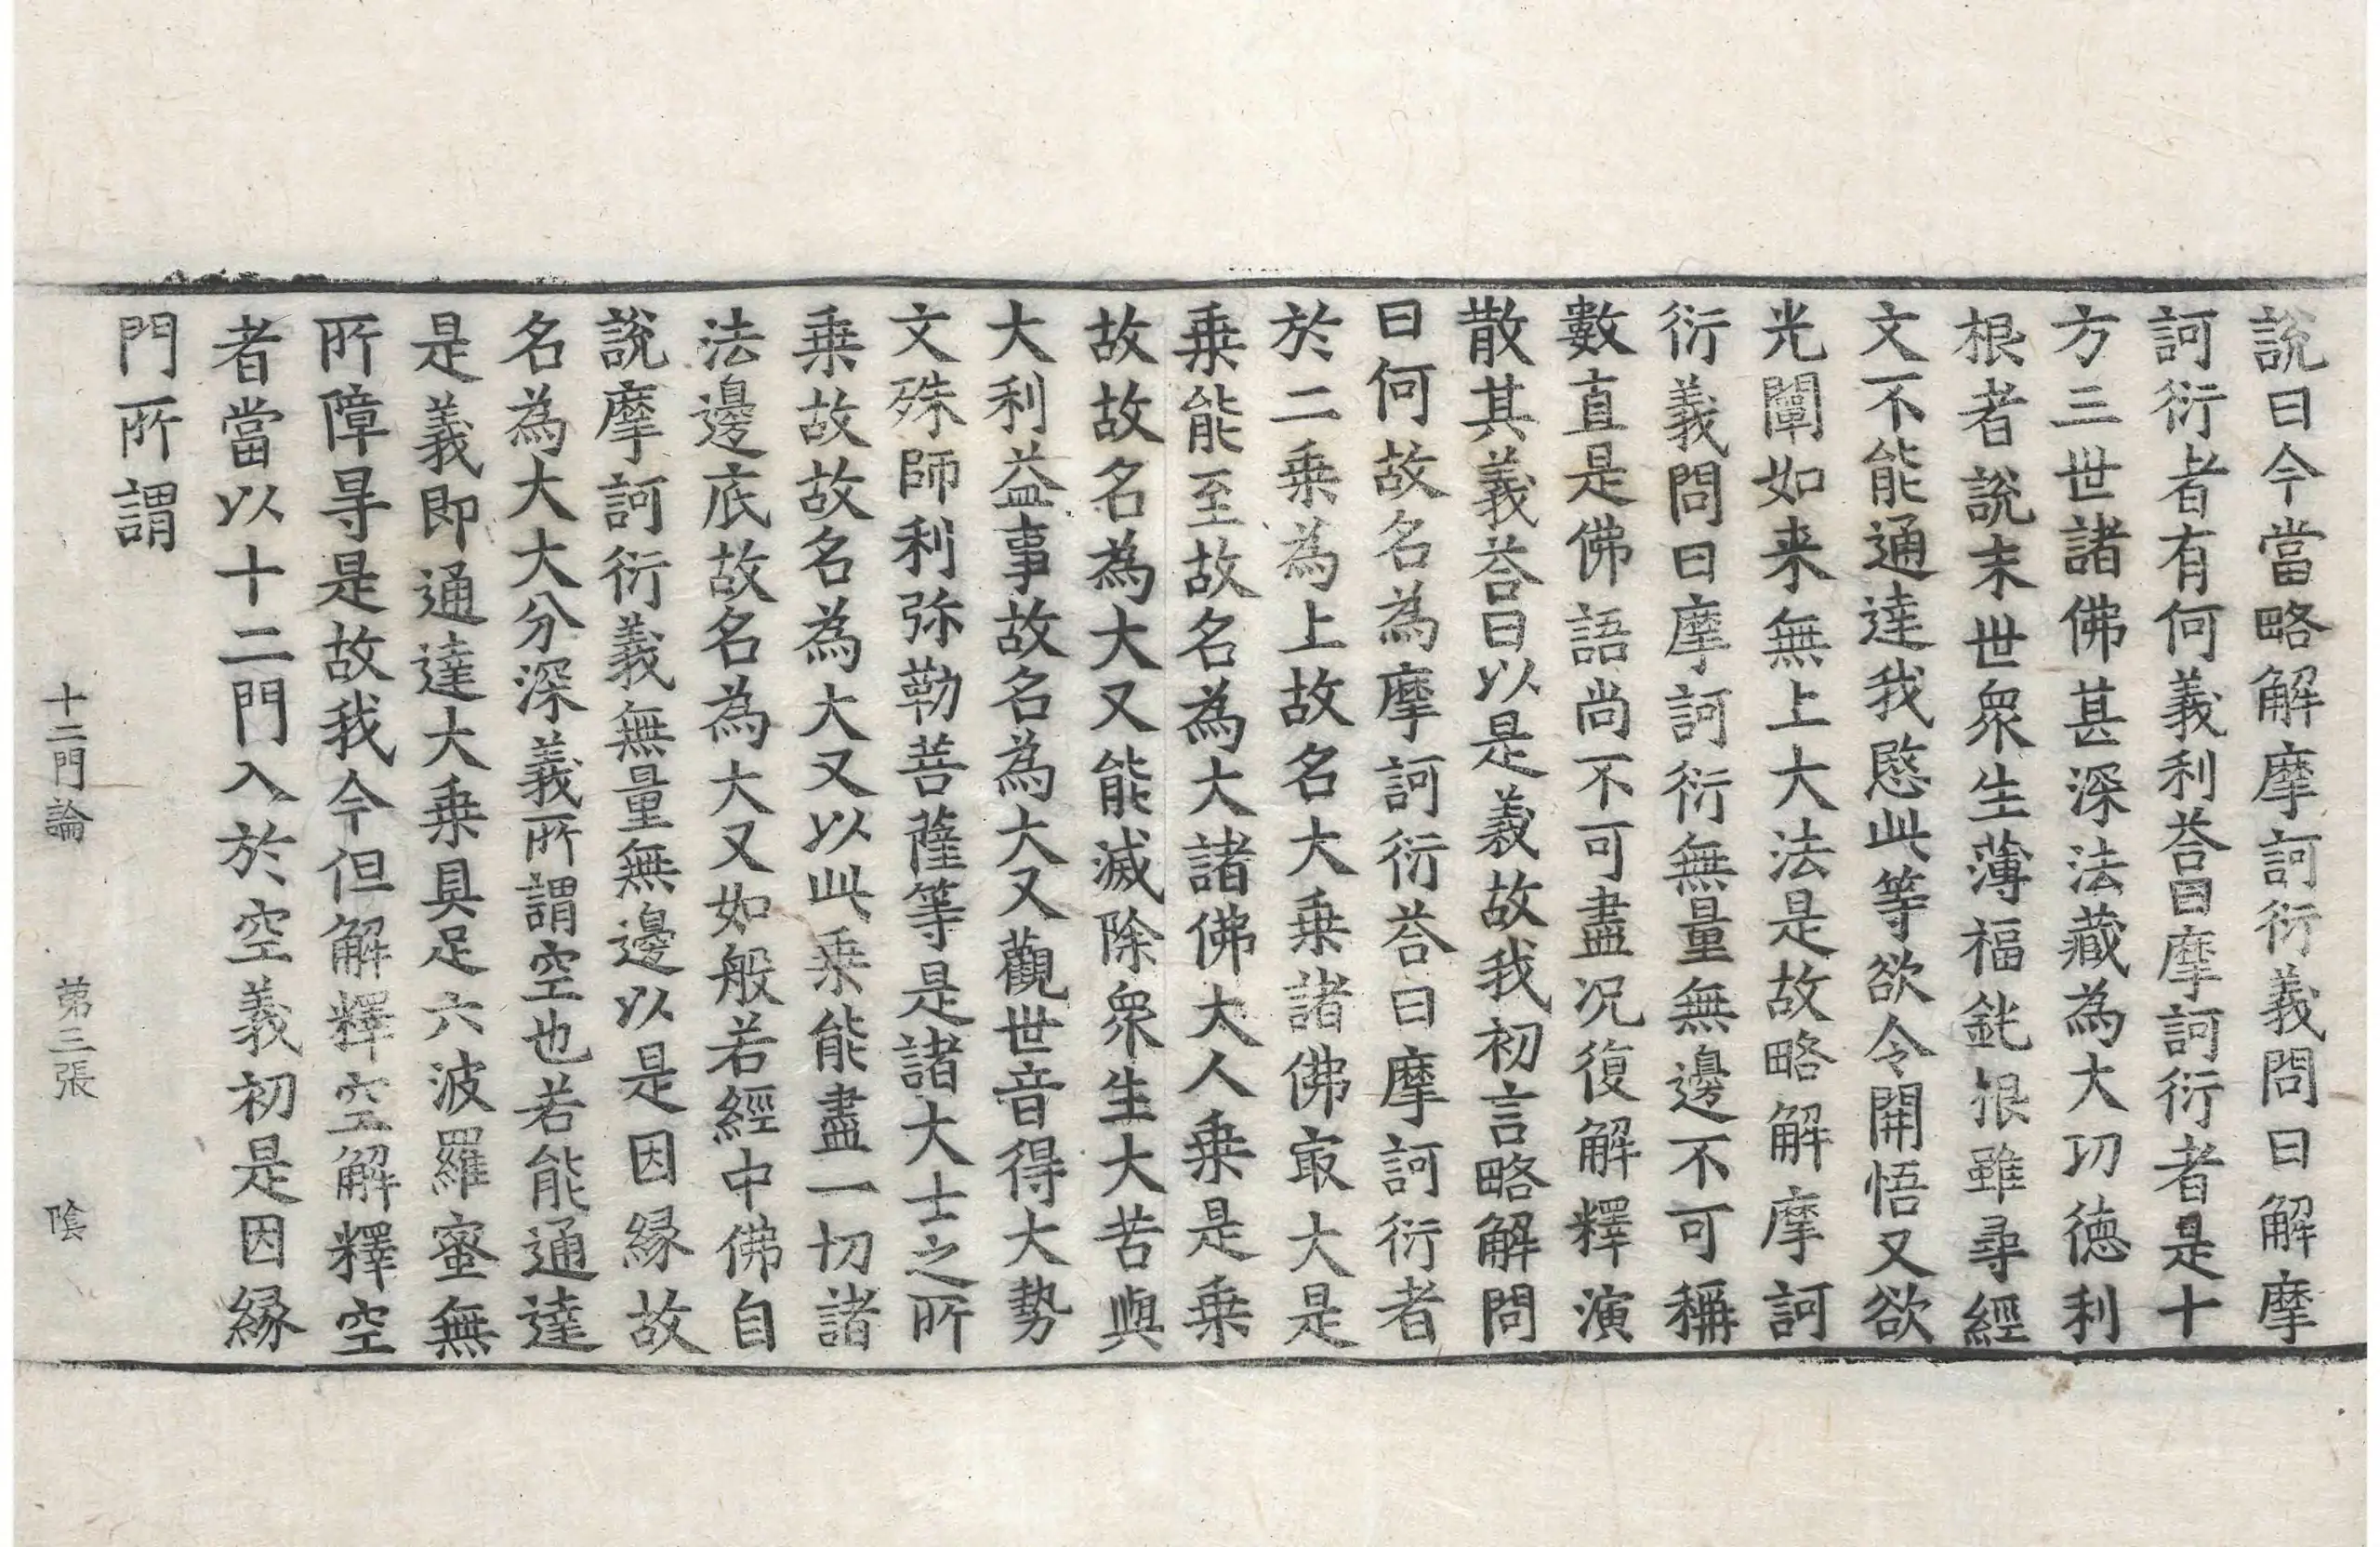 說曰今當略解摩訶衍義問曰解摩
訶衍者有何義利荅曰摩訶衍者是十
方三世諸佛甚深法藏為大功德利
根者說末世衆生薄福鈍根雖尋經
文不能通達我愍此等欲令開悟又欲
光闡如来無上大法是故略解摩訶
衍義問曰摩訶衍無量無邊不可稱
數直是佛語尚不可盡况復解釋演
散其義荅曰以是義故我初言略解問
曰何故名為摩訶衍荅曰摩訶衍者
於二乗為上故名大乗諸佛㝡大是
乗能至故名為大諸佛大人乗是乗
故故名為大又能滅除衆生大苦與
大利益事故名為大又觀世音得大勢
文殊師利弥勒菩薩等是諸大士之所
乗故故名為大又以此乗能盡一切諸
法邊底故名為大又如般若經中佛自
說摩訶衍義無量無邊以是因縁故
名為大大分深義所謂空也若能通達
是義即通達大乗具足六波羅蜜無
所障㝵是故我今但解釋空解釋空
者當以十二門入於空義初是因縁
門所謂
十二門論 第三張 陰